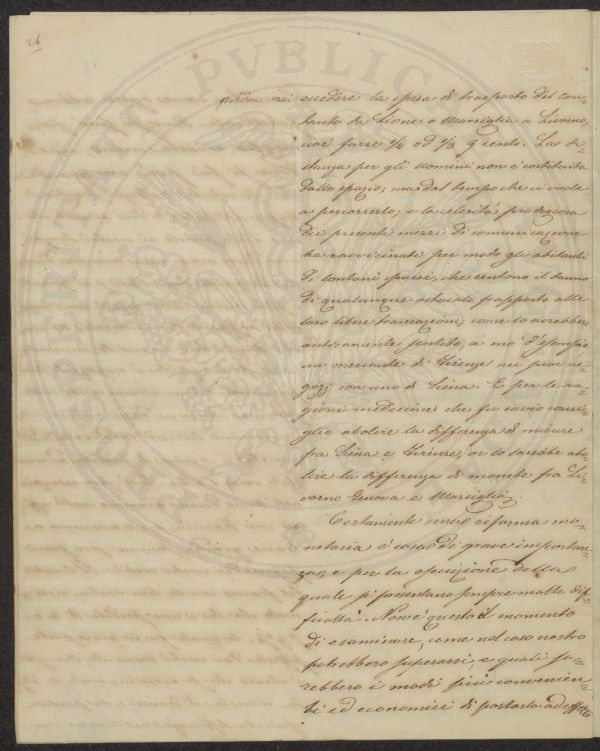 26
potea mai eccedere la spesa di trasporto del con=
tanto da Lione o Marsiglia a Livorno,
cioè forse 1/4 od 1/3 p cento. La di=
stanza per gli uomini non è costituita
dallo spazio, ma dal tempo che ci vuole
a percorrerlo; e la celerità prodigiosa
dei presenti mezzi di comunicazione
ha ravvicinati per modo gli abitanti
di lontani paesi, che sentono il danno
di qualunque ostacolo frapposto alle
loro libere transazioni, come lo avrebbe
anticamente sentito, a mo' d'esempio
un mercante di Firenze nei suoi ne=
gozj con uno di Siena. E per le ra=
gioni medesime che fu savio consi=
glio abolire la differenza di misure
fra Siena e Firenze, or lo sarebbe abo=
lire la differenza di monete fra Li=
vorno Genova e Marsiglia.
Certamente una riforma mo=
netaria è cosa di grave importan=
za, e per la esecuzione della
quale si presentano sempre molte dif=
ficoltà. Non è questo il momento
di esaminare, come nel caso nostro
potrebbero superarsi, e quali sa=
rebbero i modi più convenien=
ti ed economici di portarla ad effetto
PROSPERITATI PVBLICAE